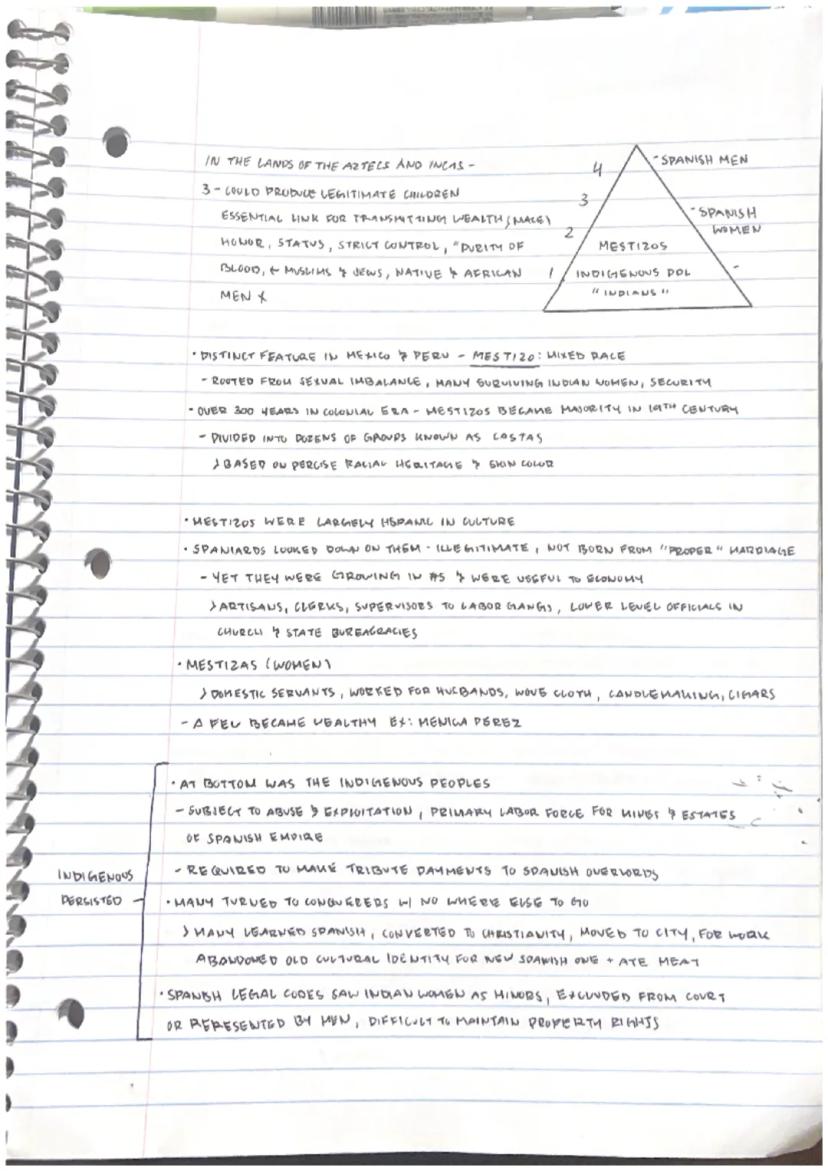 IN THE LANDS OF THE AZTECS AND INCAS -
3 - COULD PRODUCE LEGITIMATE CHILDREN
ESSENTIAL LINK FOR TRANSMITTING WEALTH, (MALE)
HONOR, STATUS, STRICT CONTROL, "PURITY OF
BLOOD, + MUSLIMS & JEWS, NATIVE & AFRICAN
MEN X
4
3
2
1
- SPANISH MEN
- SPANISH
WOMEN
MESTIZOS
-
INDIGENOUS POL
"INDIANS"
• DISTINCT FEATURE IN MEXICO & PERU - MESTIZO: MIXED RACE
- ROOTED FROM SEXUAL IMBALANCE, MANY SURVIVING INDIAN WOMEN, SECURITY
• OVER 300 YEARS IN COLONIAL ERA - MESTIZOS BECAME MAJORITY IN 19TH CENTURY
- DIVIDED INTO DOZENS OF GROUPS KNOWN AS CASTAS
> BASED ON PERCISE RACIAL HERITAGE & SKIN COLOR
• MESTIZOS WERE LARGELY HSPANIC IN CULTURE
• SPANIARDS LOOKED DOWN ON THEM - ILLEGITIMATE, NOT BORN FROM "PROPER" MARRIAGE
- YET THEY WERE GROWING IN #S & WERE USEFUL TO ECONOMY
> ARTISANS, CLERKS, SUPERVISORS TO LABOR GANGS, LOWER LEVEL OFFICIALS IN
CHURCH & STATE BUREAGRACIES
• MESTIZAS (WOMEN)
> DOMESTIC SERVANTS, WORKED FOR HUSBANDS, WOVE CLOTH, CANDLEMAKING, CIGARS
- A FEW BECAME WEALTHY EX: MENICA PEREZ
• AT BOTTOM WAS THE INDIGENOUS PEOPLES
- SUBJECT TO ABUSE & EXPLOITATION, PRIMARY LABOR FORCE FOR MINES & ESTATES
OF SPANISH EMPIRE
- REQUIRED TO MAKE TRIBUTE PAYMENTS TO SPANISH OVERLORDS
INDIGENOUS
PERSISTED -
• MANY TURNED TO CONQUERERS W/ NO WHERE ELSE TO GO
> MANY LEARNED SPANISH, CONVERTED TO CHRISTIANITY, MOVED TO CITY, FOR WORK
ABANDONED OLD CULTURAL IDENTITY FOR NEW SPANISH ONE + ATE MEAT
• SPANISH LEGAL CODES SAW INDIAN WOMEN AS MINORS, EXCLUDED FROM COURT
OR REPRESENTED BY MEN, DIFFICULT TO MAINTAIN PROPERTY RIGHTS